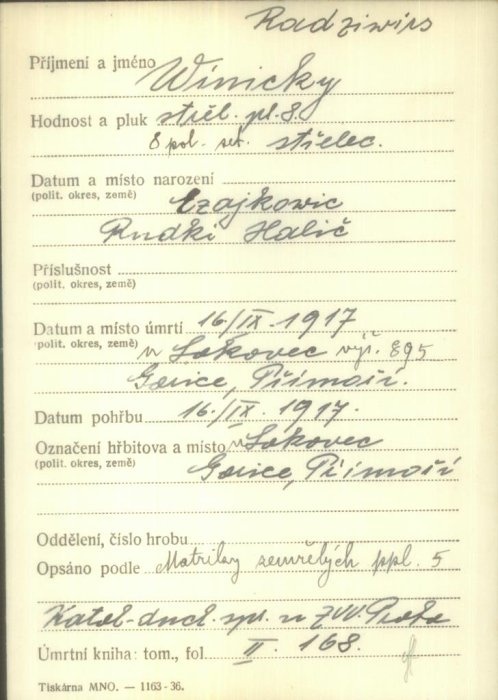 Radziwirs
Příjmení a jméno Winicky
Hodnost a pluk střel. pl. 8.
8 pol. set. střelec.
Datum a místo narození
(polit. okres, země) Czajkowic
Rudki Halič
Příslušnost
(polit. okres, země)
Datum a místo úmrtí 16/IX. 1917
(polit. okres, země) u Lokovec výš. 895
Gorice, Přímoří.
Datum pohřbu 16/IX. 1917.
Označení hřbitova a místo u Lokovec
(polit. okres, země) Gorice, Přímoří
Oddělení, číslo hrobu
Opsáno podle Matriky zemřelých ppl. 5
Katol. duch. spr. u ZVV. Praha
Úmrtní kniha: tom., fol. II. 168.
Tiskárna MNO. — 1163-36.